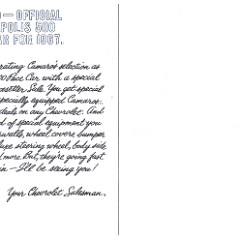 – OFFICIAL
POLIS 500
AR FOR 1967.
rating Camaro's selection as
00 Pace Car with a special
cesetter Sale. You get special
specially equipped Camaros.
deals on any Chevrolet. And
d of special equipment you
rwalls, wheel covers, bumper
luxe steering wheel, body side
d more. But, they're going fast
in – I'll be seeing you!
Your Chevrolet Salesman.